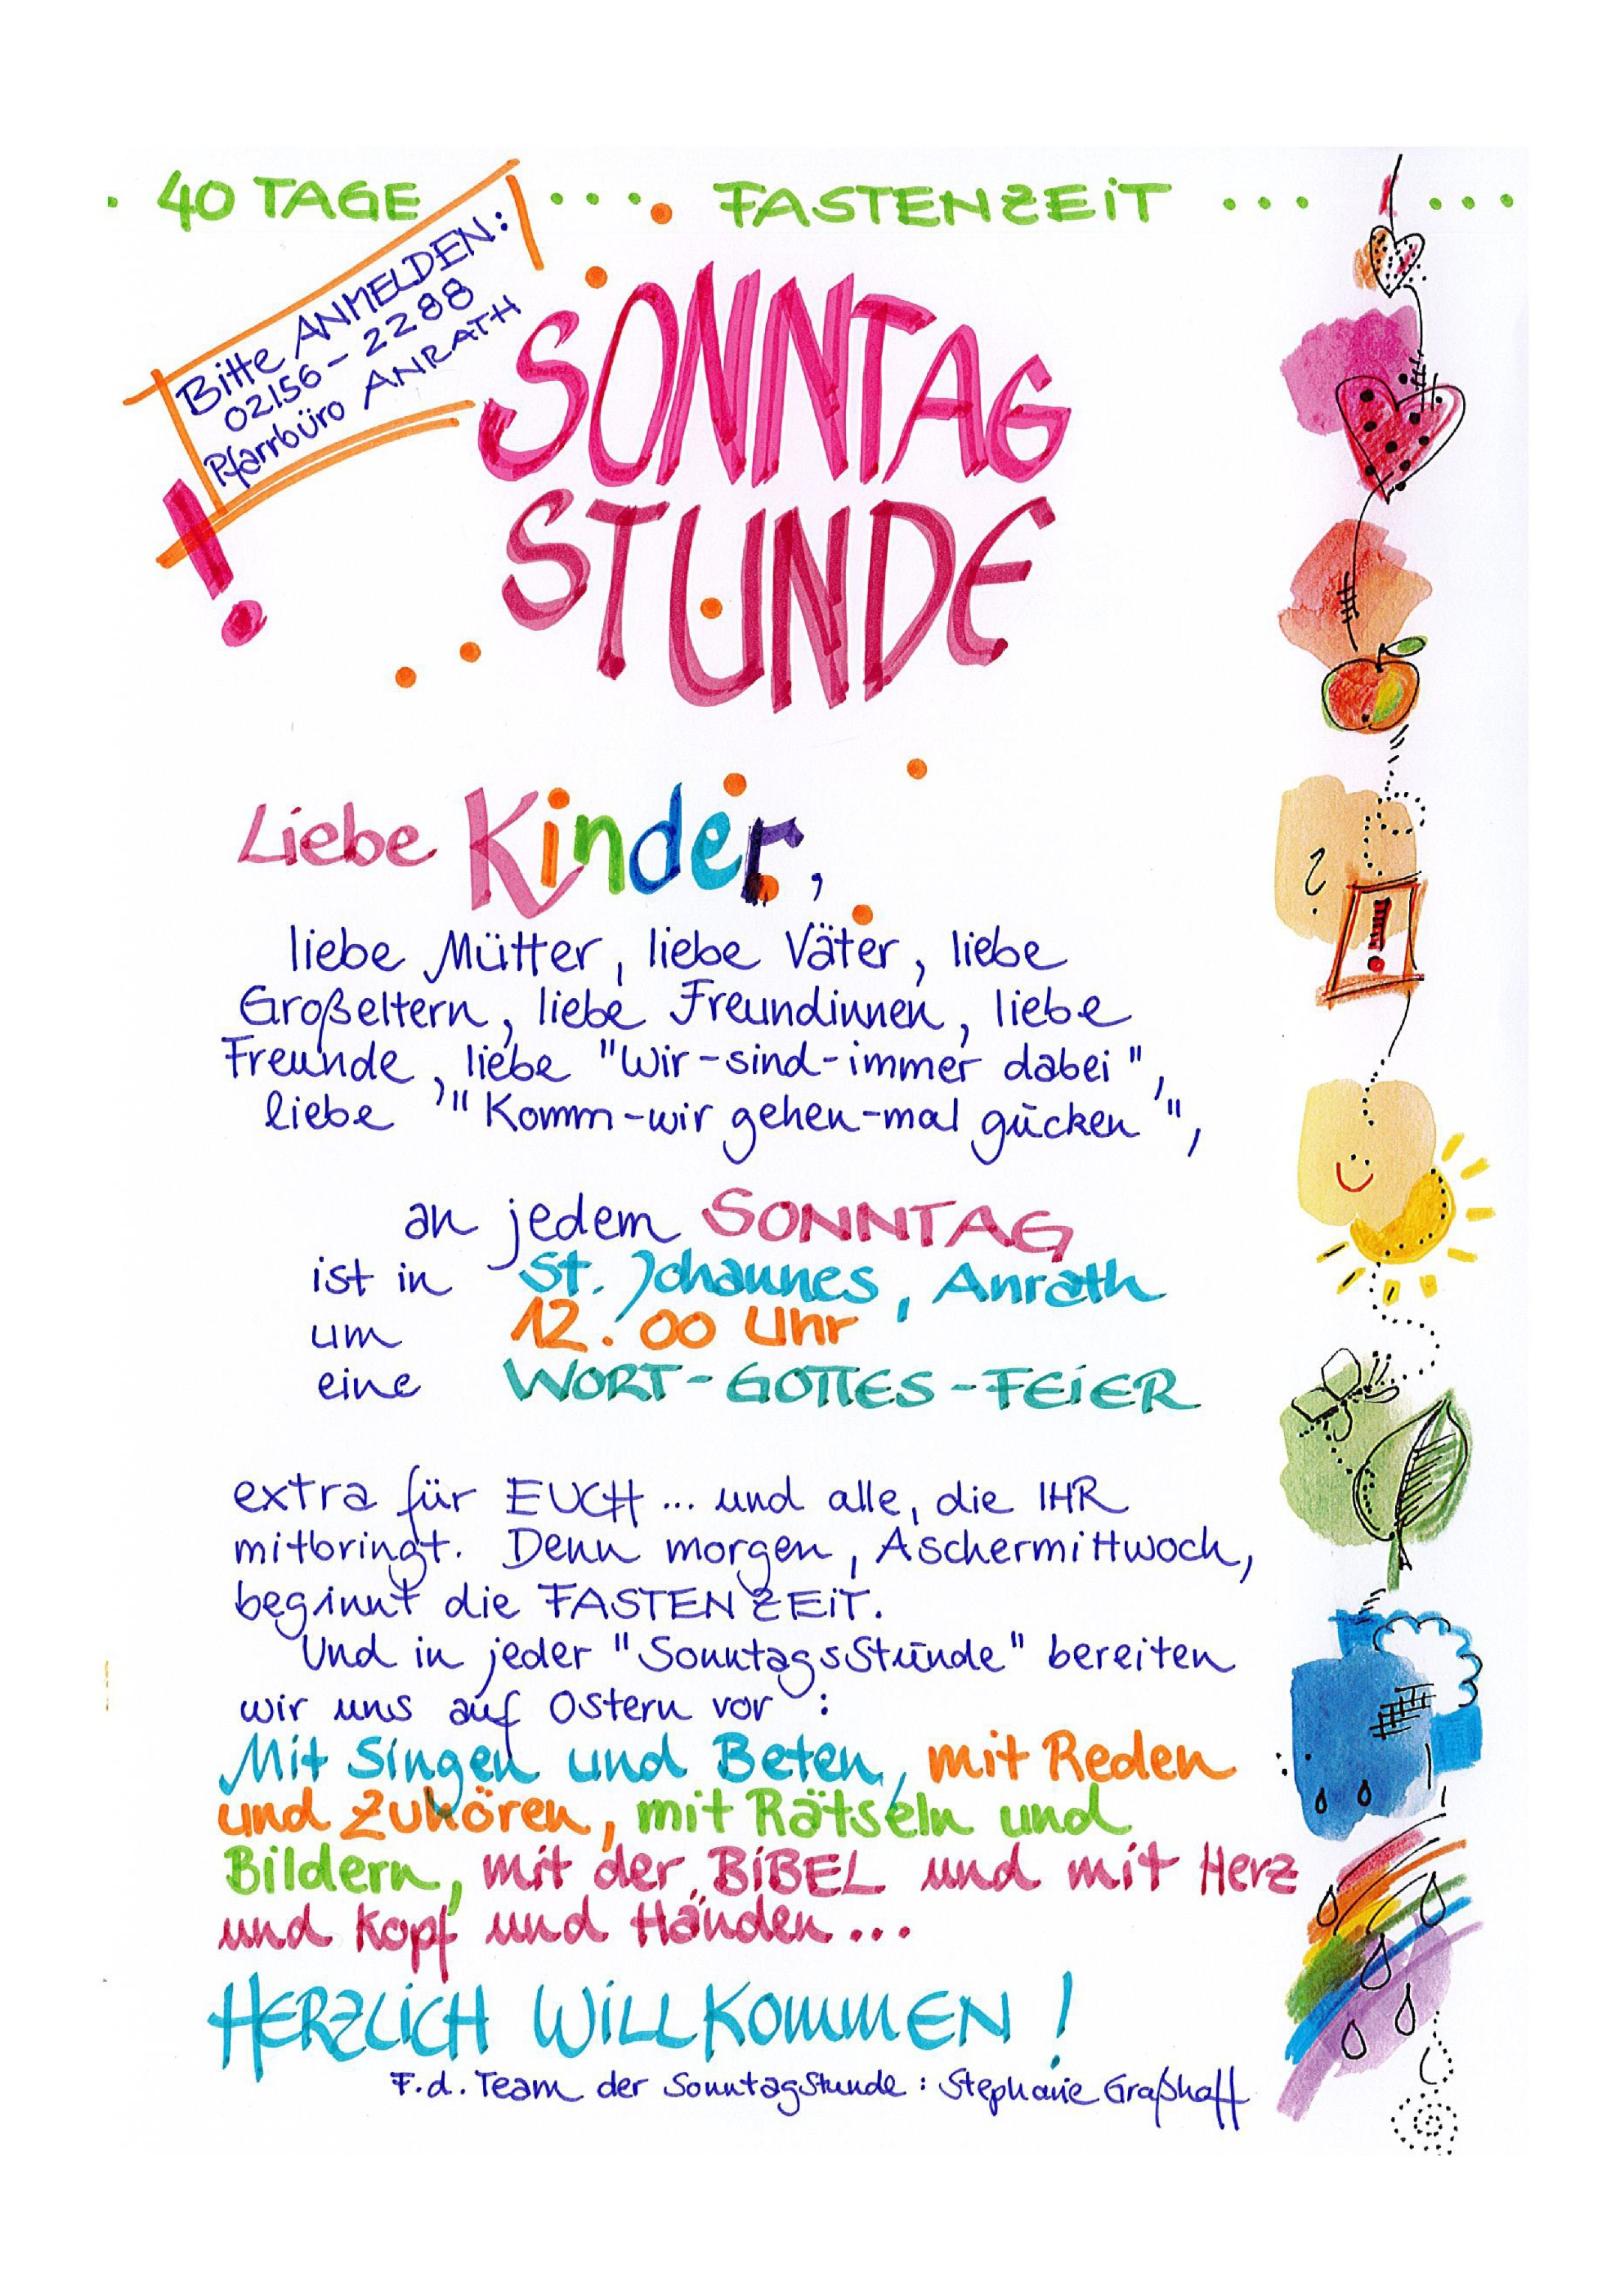 40 TAGE .... FASTENZEIT ... ...
Bitte ANMELDEN:
02156-2288
Pfarrbüro ANRATH
!
SONNTAG
STUNDE
Liebe Kinder,
liebe Mütter, liebe Väter, liebe
Großeltern, liebe Freundinnen, liebe
Freunde, liebe "Wir-sind-immer dabei",
liebe "Komm-wir gehen-mal gucken",
an jedem SONNTAG
ist in St. Johannes, Anrath
um 12.00 Uhr
eine WORT-GOTTES-FEIER
extra für EUCH ... und alle, die IHR
mitbringt. Denn morgen, Aschermittwoch,
beginnt die FASTENZEIT.
Und in jeder "SonntagsStunde" bereiten
wir uns auf Ostern vor:
Mit Singen und Beten, mit Reden
und Zuhören, mit Rätseln und
Bildern, mit der BIBEL und mit Herz
und Kopf und Händen...
HERZLICH WILLKOMMEN!
F.d. Team der SonntagStunde: Stephanie Graßhoff
?
!